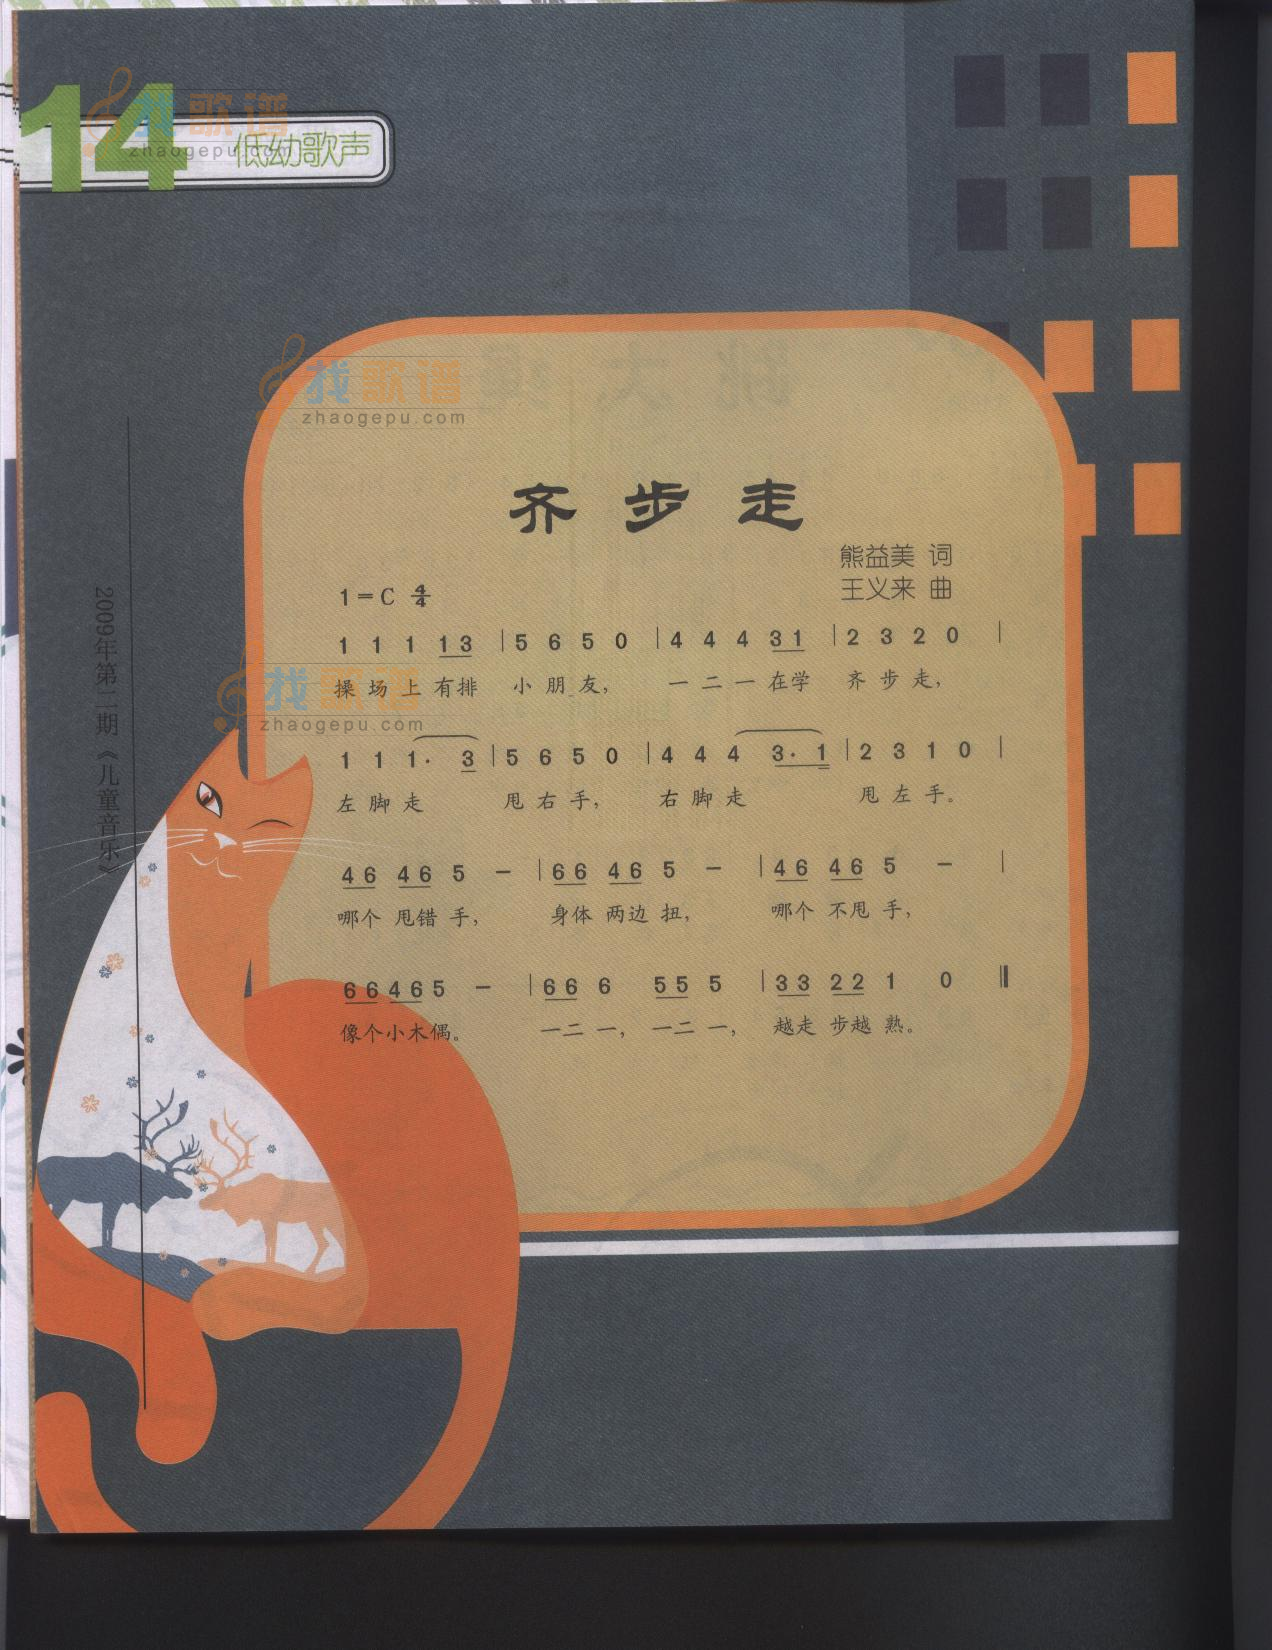 14
找歌谱
zhaogepu.com
低幼歌声
找歌谱
zhaogepu.com
齐步走
熊益美 词
王义来 曲
1=C 4/4
1 1 1 1 3 | 5 6 5 0 | 4 4 4 3 1 | 2 3 2 0 |
操 场 上 有排 小 朋 友, 一 二 一 在学 齐 步 走,
找歌谱
zhaogepu.com
1 1 1· 3 | 5 6 5 0 | 4 4 4 3· 1 | 2 3 1 0 |
左 脚 走 甩 右 手, 右 脚 走 甩 左 手。
4 6 4 6 5 - | 6 6 4 6 5 - | 4 6 4 6 5 - |
哪个 甩错 手, 身体 两边 扭, 哪个 不甩 手,
6 6 4 6 5 - | 6 6 6 5 5 5 | 3 3 2 2 1 0 ‖
像个小木偶。 一二 一, 一二 一, 越走 步越 熟。
2009年第二期《儿童音乐》